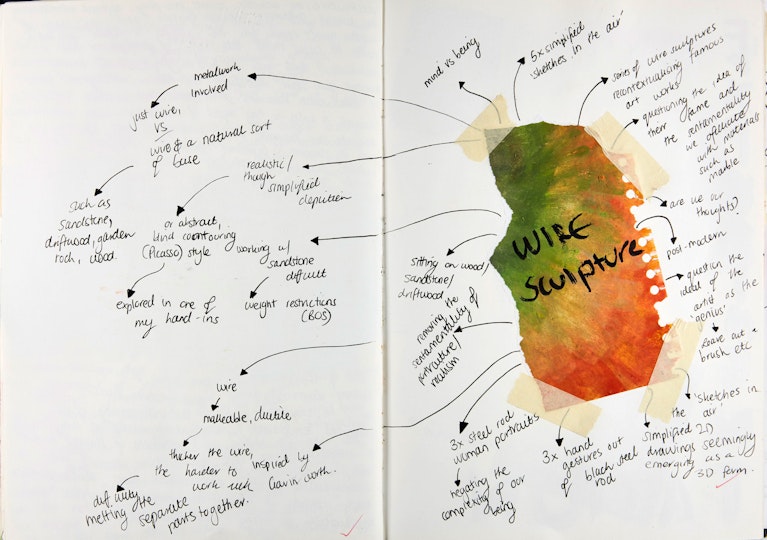 metalwork
involved
just wire,
vs
wire & a natural sort
of base
such as
sandstone,
driftwood, garden
rock, wood.
realistic/
though
simplified
depiction
or abstract,
blind contouring
(Picasso) style
explored in one of
my hand-ins
working w/
sandstone
difficult
weight restrictions
(BOS)
wire
malleable, ductile
thicker the wire,
the harder to
work with
difficulty
melting the
separate
parts together.
inspired by
Gavin Worth.
WIRE
Sculpture
mind vs being
5x simplified
'sketches in the air'
series of wire sculptures
recontextualising famous
art works
questioning the idea of
their fame and
the sentamentality
we affiliate
with materials
such as
marble
are we our
thoughts?
post-modern
question the
ideal of the
'artist as the
genius'
leave out a
brush etc
'sketches in
the air'
simplified 2D
drawings seemingly
emerging as a
3D form.
3x hand
gestures out
of black steel
rod
3x steel rod
woman portraits
negating the
complexity of our
being
removing the
sentamentality of
portraiture/
realism
sitting on wood/
sandstone/
driftwood